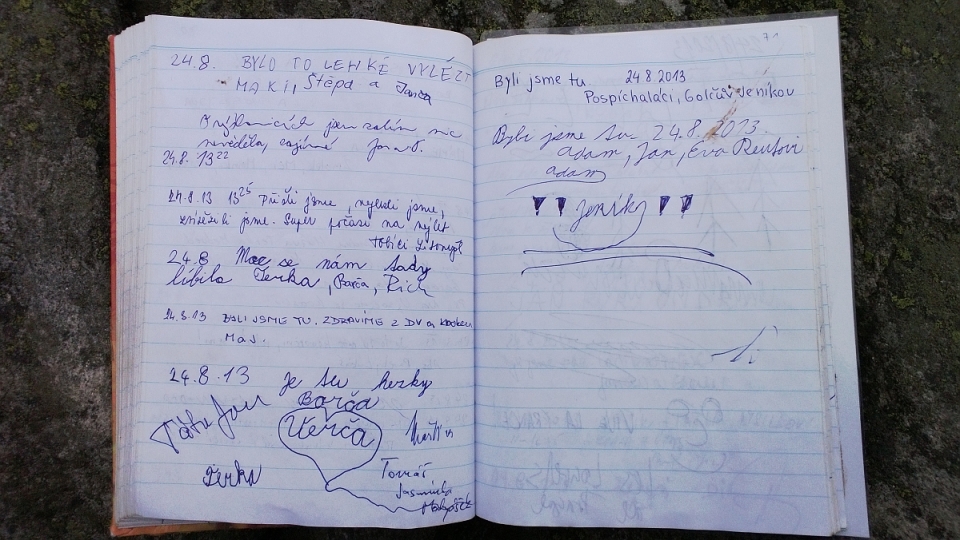 24.8. BYLO TO LEHKÉ VYLÉZT
MAKI, Štěpa a Janča
O výklenicích jsem zatím nic
nevěděla, zajímá
24.8. 13²²
24.8.13 13²⁵ Přišli jsme, vylezli jsme,
jsme. Super počasí na výlet
24.8 Moc se nám tady
líbilo Terka, Barča, Rich
24.8.13 BYLI JSME TU. ZDRAVÍME Z DV
MAJ.
24.8.13 Je tu hezky
Táta Jan
Barča
Verča
Terka
Tomáš
Jasmínka
71
Byli jsme tu 24 8 2013
Pospíchaláci, Golčův Jeníkov
Byli jsme tu 24.8. 2013.
adam, Jan, Eva
adam
jeník